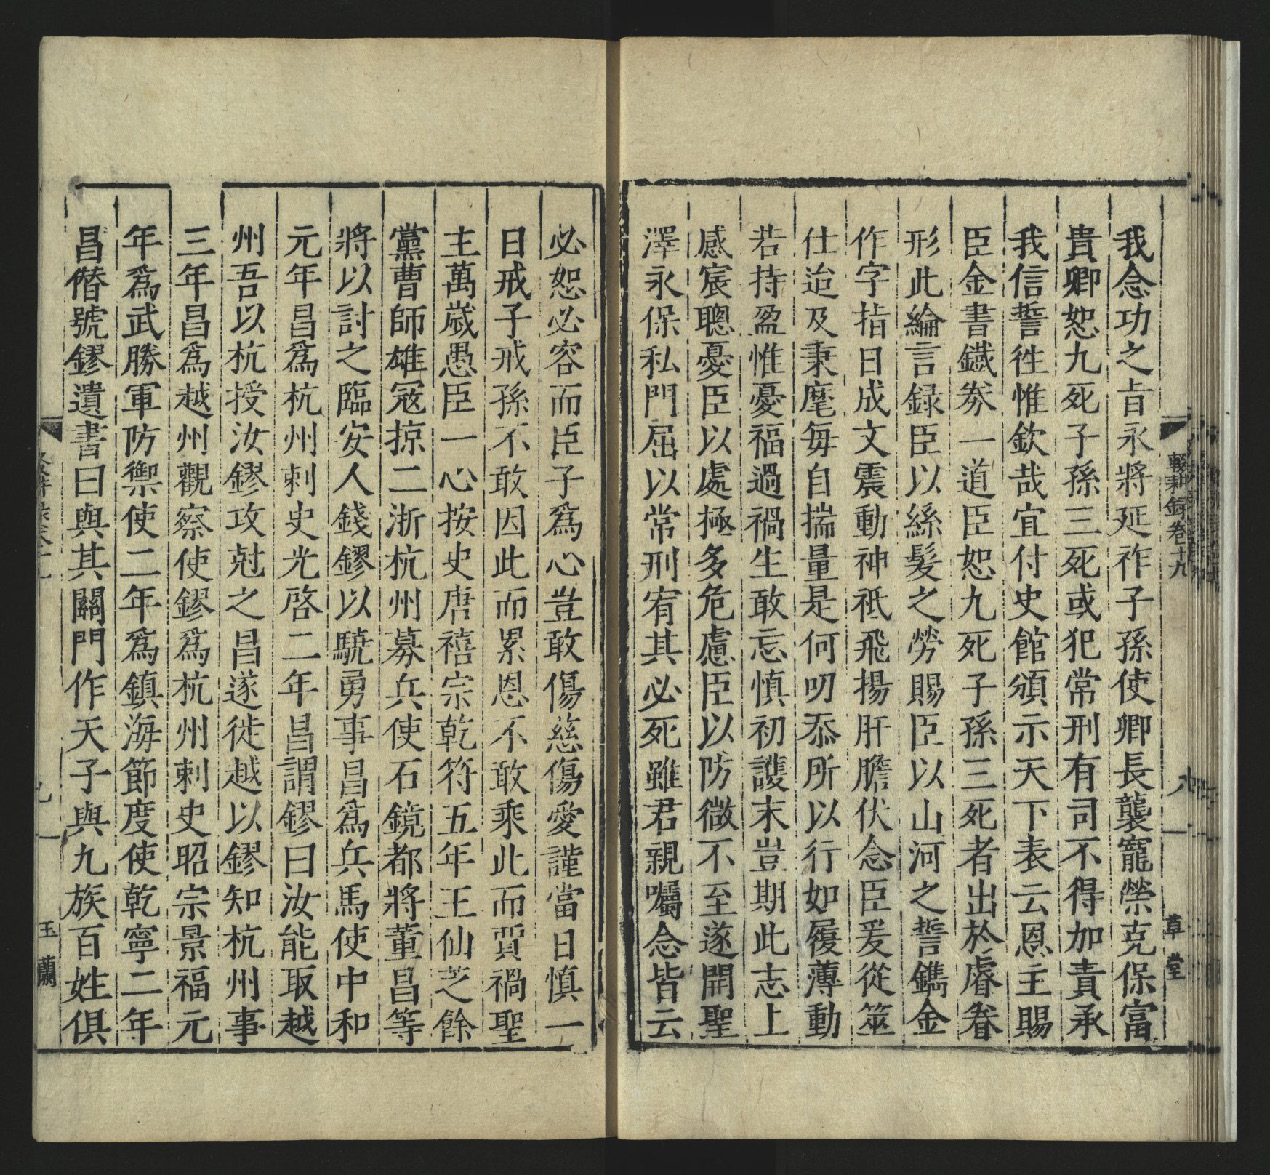 我念功之旨永將延祚子孫使卿長襲寵榮克保富
貴卿恕九死子孫三死或犯常刑有司不得加責承
我信誓徃惟欽哉宜付史館頒示天下表云恩主賜
臣金書鐵劵一道臣恕九死子孫三死者出於睿眷
形此綸言録臣以絲髮之勞賜臣以山河之誓鐫金
作字指日成文震動神祇飛揚肝膽伏念臣爰從筮
仕迨及秉麾毎自揣量是何叨忝所以行如履薄動
若持盈惟憂福過禍生敢忘慎初護末豈期此志上
感宸聰憂臣以處極多危慮臣以防微不至遂開聖
澤永保私門屈以常刑宥其必死雖君親囑念皆云
輟耕録卷十九
八
草堂
必恕必容而臣子爲心豈敢傷慈傷愛謹當日慎一
日戒子戒孫不敢因此而累恩不敢乘此而賈禍聖
主萬歳愚臣一心按史唐禧宗乾符五年王仙芝餘
黨曹師雄冦掠二浙杭州募兵使石鏡都將董昌等
將以討之臨安人錢鏐以驍勇事昌爲兵馬使中和
元年昌爲杭州刺史光啓二年昌謂鏐曰汝能取越
州吾以杭授汝鏐攻尅之昌遂徙越以鏐知杭州事
三年昌爲越州觀察使鏐爲杭州刺史昭宗景福元
年爲武勝軍防禦使二年爲鎮海節度使乾寧二年
昌僭號鏐遺書曰與其闗門作天子與九族百姓俱
九
玉蘭